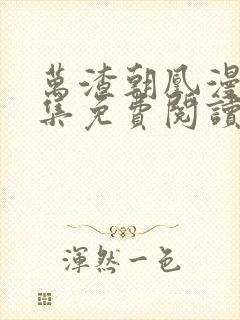 萬渣朝凰漫
集免費閱讀
渾然一色